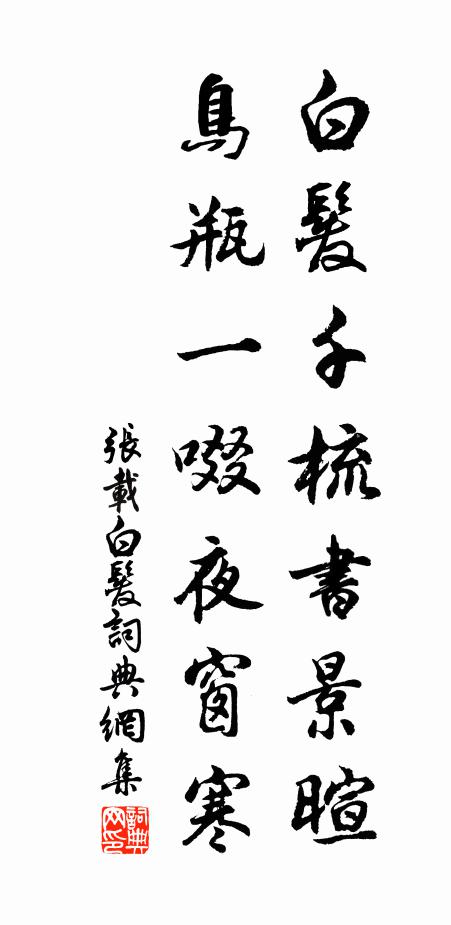 白髮千梳書景暄
鳥瓶一啜夜窗寒
張載白髮詞典網集
詞典網印